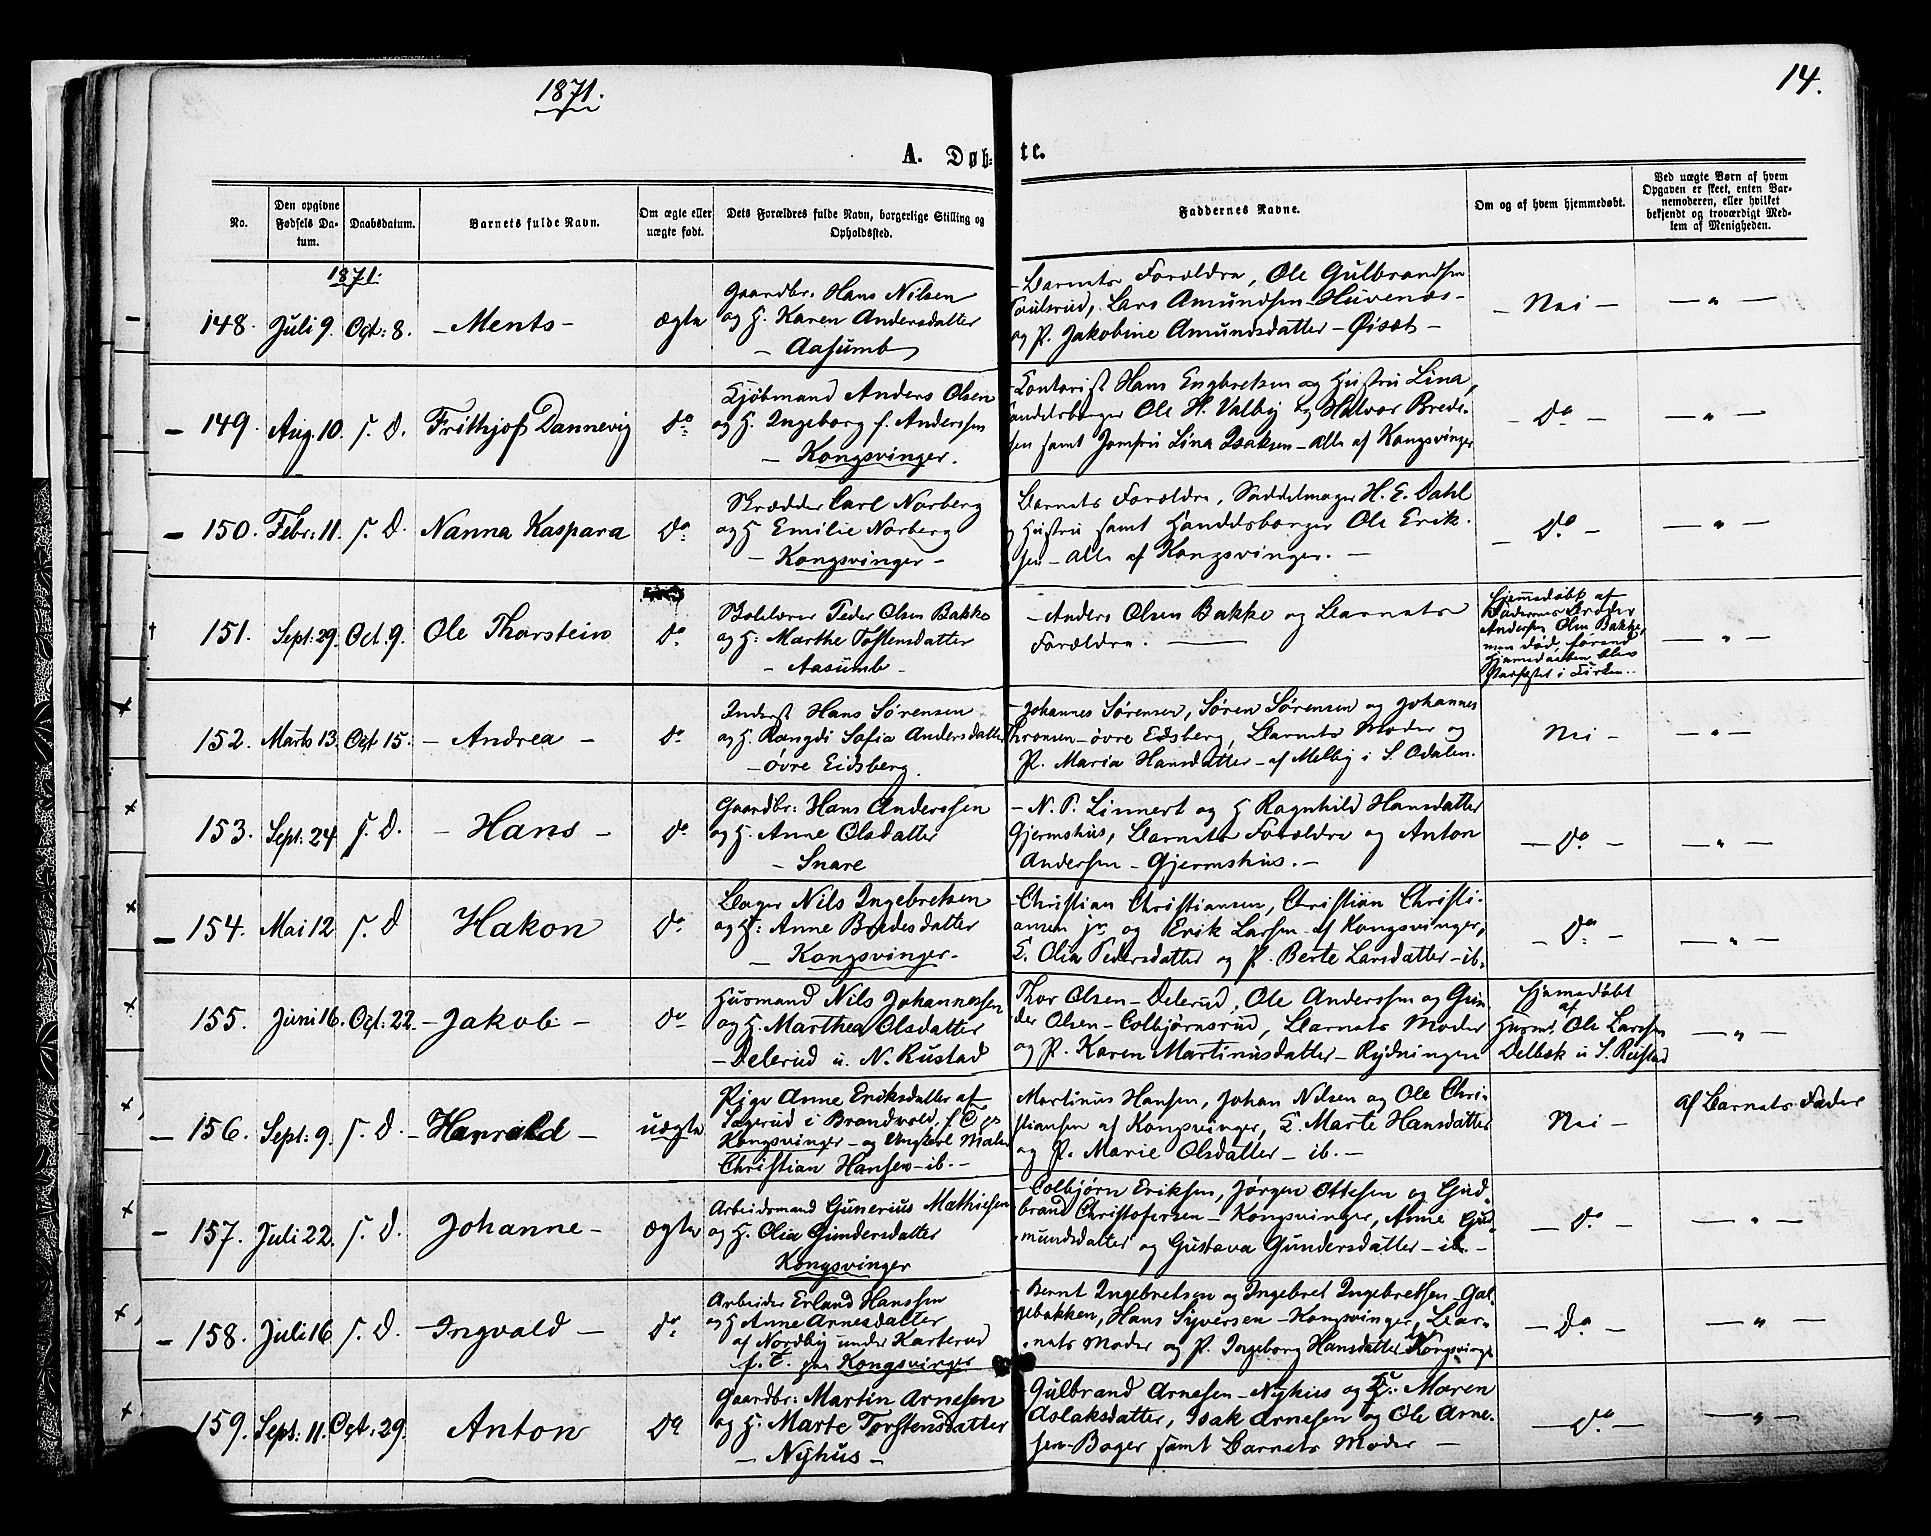 1871.
14.
A. Døb-te.
No.
Den opgivne Fødsels Datum.
Daabsdatum.
Barnets fulde Navn.
Om ægte eller uægte født.
Dets Forældres fulde Navn, borgerlige Stilling og Opholdssted.
Faddernes Navne.
Om og af hvem hjemmedøbt.
Ved uægte Børn af hvem Opgaven er skeet, enten Barnemoderen, eller hvilket bekjendt og troværdigt Medlem af Menigheden.
1871.
148. Juli 9. Oct: 8. – Ments – ægte
Gaardbr: Hans Nilsen
og H. Karen Andersdatter
– Aasumb
– Barnets Forældre, Ole Gulbrandsen
Lars Amundsen – Huvenæs –
og P. Jakobine Amundsdatter – Øiset –
– Nei – – " –
149. Aug. 10. s. D. Frithjof Dannevig do
Kjøbmand Anders Olsen
og H. Ingeborg f. Anderssen
– Kongsvinger.
– Kontorist Hans Engbretsen og Hustru Lina,
Handelsborger Ole H. Valby og Halvor Bredesen
samt Jomfru Lina Isaksen – alle af Kongsvinger
– Do – – " –
150. Febr: 11. s. D. Nanna Kaspara do
Skrædder Carl Norberg
og H Emilie Norberg
– Kongsvinger –
Barnets Forældre, Saddelmager H. E. Dahl
og Hustru samt Handelsborger Ole Erik-
sen – alle af Kongsvinger. –
– Do. – – " –
151. Sept: 29. Oct. 9. Ole Thorstein do
Peder Olsen Bakke
og H: Marthe Tostensdatter
– Aasumb –
– Anders Olsen Bakke og Barnets
Forældre. –
Hjemmedøbt af
Faderens Broder
Anders Olsen Bakke,
men død, førend
Hjemedaaben blev
stadfæstet i Kirken.
– " –
152. Marts 13. Oct 15. – Andrea – do
Inderst Hans Sørensen
og H. Rangdi Sofie Andersdatter
– øvre Eidsberg.
– Johannes Sørensen, Søren Sørensen og Johannes
Thronsen – øvre Edsberg, Barnets Moder og
P. Maria Hansdatter – af Melby i S. Odalen.
Nei – – " –
153. Sept: 24. s. D. – Hans – do
Gaardbr: Hans Anderssen
og H. Anne Olsdatter
– Snare
– N. P. Linnert og H Ragnhild Hansdatter
Gjermshus, Barnets Forældre og Anton
Andersen – Gjermshus. –
– do. – – " –
154. Mai 12 s. D Hakon do.
Bager Nils Ingebretsen
og H: Anne Bredesdatter
– Kongsvinger. –
– Christian Christiansen, Christian Christi-
ansen jr og Erik Larsen – af Kongsvinger,
K. Olia Pedersdatter og P. Berte Larsdatter – ib.
– Do – – " –
155. Juni 16. Oct. 22. – Jakob – do
Husmand Nils Johannessen
og H. Marthea Olsdatter
– Delerud u. N. Rustad
Thor Olsen – Delerud, Ole Anderssen og Gun-
der Olsen – Colbjørnsrud, Barnets Moder
og P. Karen Martinusdatter – Rydningen
Hjemedøbt
af
Husmd. Ole Larsen
Delbæk u S. Rustad
– " –
156. Sept: 9. s. D. – Harald – uægte
Pige Anne Eriksdatter af
i Brandvold,
Kongsvinger – og Ungkarl Maler
Christian Hansen – ib. –
Martinus Hansen, Johan Nilsen og Ole Chri-
stiansen af Kongsvinger, K. Marte Hansdatter
og P. Marie Olsdatter – ib. –
Nei –
Af Barnets Fader
157. Juli 22. s. D. Johanne – ægte
Arbeidsmand Gunerius Mathiesen
og H. Olia Gundersdatter
Kongsvinger
– Colbjørn Eriksen, Jørgen Ottesen og Gud-
brand Christofersen – Kongsvinger, Anne Gud-
mundsdatter og Gustava Gundersdatter – ib. –
– do – – " –
158. Juli 16. s. D. – Ingvald – do
Arbeider Erland Hanssen
og H Anne Arnesdatter
af Nordby under Karterud
f. T. paa Kongsvinger
– Bernt Ingebretsen og Ingebret Ingebretsen – Gal-
gebakken, Hans Syversen – Kongsvinger, Bar-
nets Moder og P. Ingeborg Hansdatter Kongsvinger
– Do – – " –
159. Sept: 11. Oct: 29. Anton Do
Gaardbr: Martin Arnesen
og H. Marte Torstensdatter
– Nyhus –
– Gulbrand Arnesen – Nyhus og K: Maren
Aslaksdatter, Isak Arnesen og Ole Arne-
sen – Bager samt Barnets Moder –
– do – – " –